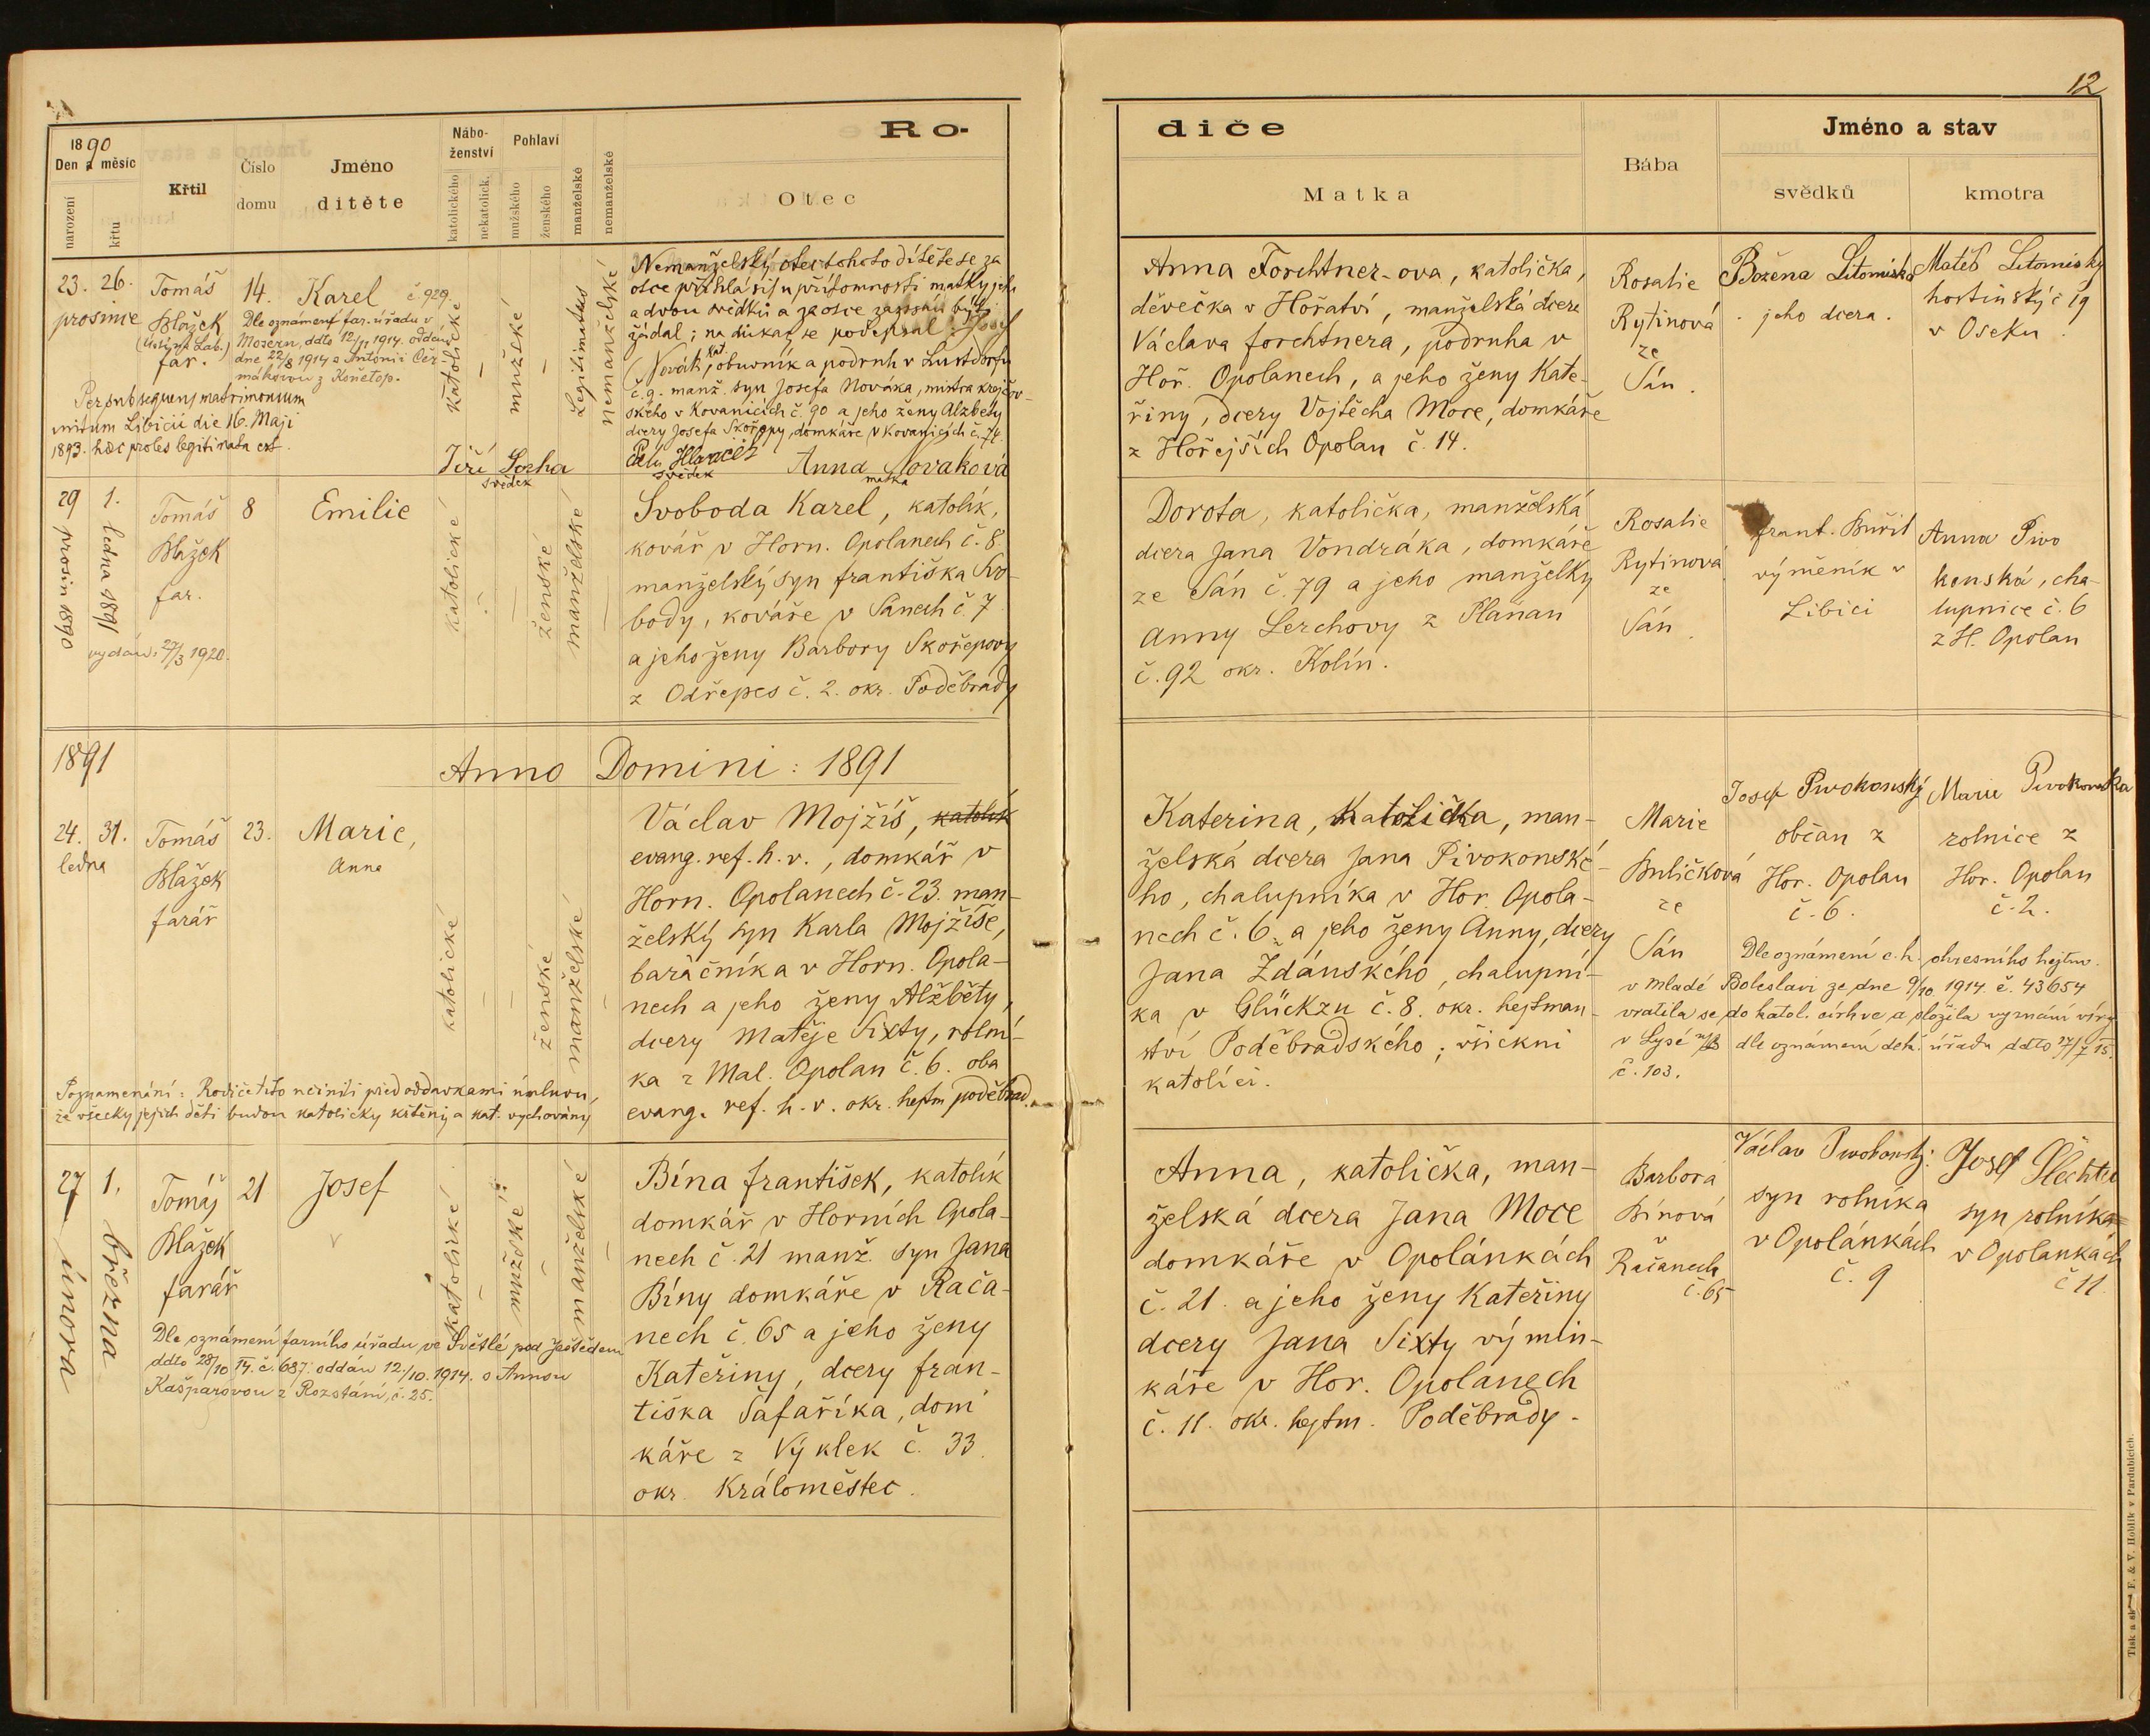 12
1890
Den a měsíc
narození
křtu
Křtil
Číslo
domu
Jméno
dítěte
Nábo-
ženství
katolického
nekatolick.
Pohlaví
mužského
ženského
manželské
nemanželské
Ro-
Otec
diče
Matka
Bába
Jméno a stav
svědků
kmotra
23. 26.
prosince
Tomáš
Blažek
(Ústí n Lab.)
far.
14.
Karel č 929.
Dle oznámení far. úřadu v
Mosern, ddto 12/11 1914. oddán
dne 22/8 1914 s Antonií Čer-
mákovou z Konětop.
Per subsequens matrimonium
initum Libicii die 16. Maji
1893. haec proles legitimata est.
katolické
–
mužské
–
Legitimatus
nemanželské
Nemanželský otec tohoto dítěte se za
otce přihlásil u přítomnosti matky jeh.
a dvou svědků a za otce zapsán býti
žádal; na důkaz se podepsal: Josef
Novák, kat. obuvník a podruh v Lustdorfu
č. 9. manž. syn Josefa Nováka, mistra krejčov-
ského v Kovanicích č. 90 a jeho ženy Alžběty
dcery Josefa Skořepy, domkáře v Kovanicích č. 74.
Jiří Socha
svědek
svědek
Anna Nováková
matka
Anna Forchtner-ova, katolička,
děvečka v Hořatvi, manželská dcera
Václava Forchtnera, podruha v
Hoř. Opolanech, a jeho ženy Kate-
řiny, dcery Vojtěcha Moce, domkáře
z Hořejších Opolan č. 14.
Rosalie
Rytinová
ze
Sán.
Božena Litomiská
jeho dcera.
Matěj Litomiský
hostinský č 19
v Oseku.
29 prosin 1890
1. ledna 1891
Tomáš
Blažek
far.
vydán: 27/3 1920.
8
Emilie
katolické
–
–
ženské
manželské
–
Svoboda Karel, katolík,
kovář v Horn. Opolanech č. 8.
manželský syn Františka Svo-
body, kováře v Sánech č. 7
a jeho ženy Barbory Skořepovy
z Odřepes č. 2. okr. Poděbrady
Dorota, katolička, manželská
dcera Jana Vondráka, domkáře
ze Sán č. 79 a jeho manželky
Anny Lerchovy z Plaňan
č. 92 okr. Kolín.
Rosalie
Rytinová
ze
Sán.
Frant. Buřil
výměník v
Libici
Anna Pivo
konská, cha-
lupnice č. 6
z H. Opolan
1891
Anno Domini: 1891
24. 31.
ledna
Tomáš
Blažek
farář
23.
Marie,
Anna
katolické
–
–
ženské
manželské
–
Václav Mojžíš, katolík
evang. ref. h. v., domkář v
Horn. Opolanech č. 23. man-
želský syn Karla Mojžíše,
baráčníka v Horn. Opola-
nech a jeho ženy Alžběty,
dcery Matěje Sixty, rolní-
ka z Mal. Opolan č. 6. oba
evang. ref. h. v. okr. hejtm poděbrad.
Poznamenání: Rodiče tito nečinili před oddavkami úmluvu,
že všecky jejich děti budou katolicky křtěny a kat. vychovány
Katerina, katolička, man-
želská dcera Jana Pivokonské-
ho, chalupníka v Hor. Opola-
nech č. 6. a jeho ženy Anny, dcery
Jana Ždánského, chalupní-
ka v Glückzu č. 8. okr. hejtman-
ství Poděbradského; všickni
katolíci.
Marie
Buličková
ze
Sán
Josef Pivokonský
občan z
Hor. Opolan
č. 6.
Marie Pivokonska
rolnice z
Hor. Opolan
č. 2.
Dle oznámení c. k. okresního hejtm.
v Mladé Boleslavi ze dne 9/10 1914. č. 43654
vrátila se do katol. církve a složila vyznání víry
v Lysé dle oznámení děk. úřadu ddto 27/7 15.
č. 103.
27 února
1. března
Tomáš
Blažek
farář
21
Josef
katolické
–
mužské
–
manželské
–
Bína František, katolík
domkář v Horních Opola-
nech č. 21 manž. syn Jana
Bíny domkáře v Rača-
nech č. 65 a jeho ženy
Kateřiny, dcery Fran-
tiška Šafaříka, dom
káře z Výklek č. 33.
okr. Králoměstec.
Dle oznámení farního úřadu ve Světlé pod Ještědem
ddto 28/10 14. č. 687. oddán 12/10. 1914. s Annou
Kašparovou z Rozstání, č. 25.
Anna, katolička, man-
želská dcera Jana Moce
domkáře v Opolánkách
č. 21. a jeho ženy Kateřiny
dcery Jana Sixty výmin-
káře v Hor. Opolanech
č. 11. okr. hejtm. Poděbrady.
Barbora
Bínová
v
Račanech
č. 65
Václav Pivokonský.
syn rolníka
v Opolánkách
č. 9
Josef Šlechta
syn rolníka
v Opolankách
č 11.
Tisk a sklad F. & V. Hoblík v Pardubicích.